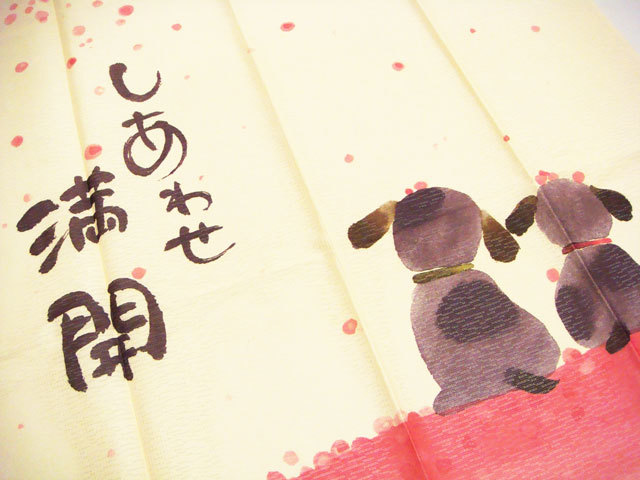 しあわせ
満開